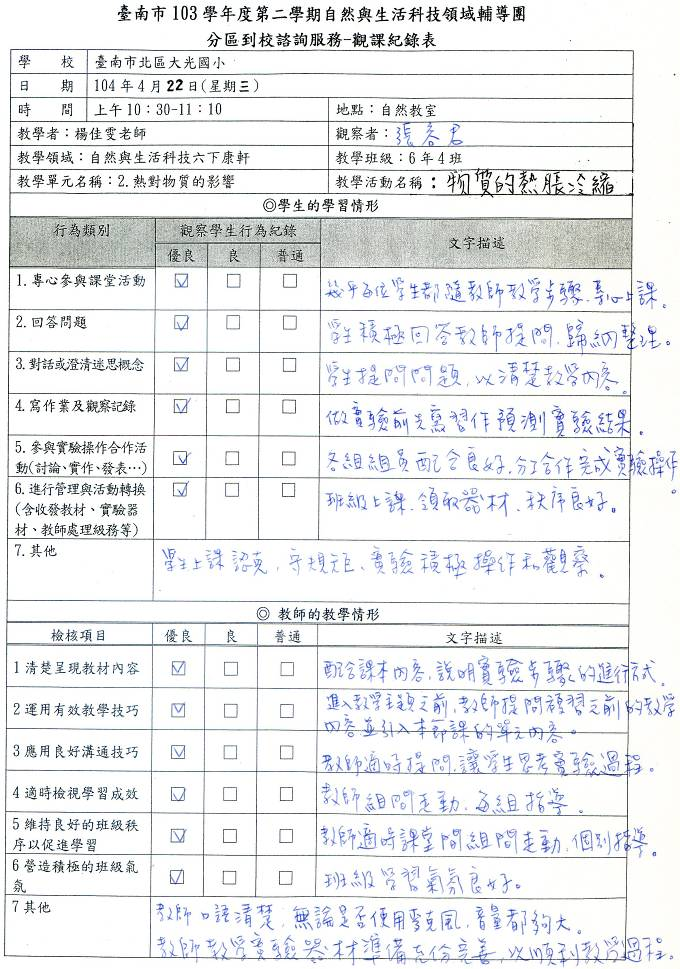 臺南市 103 學年度第二學期自然與生活科技領域輔導團
分區到校諮詢服務-觀課紀錄表
學 校 臺南市北區大光國小
日 期 104 年 4 月 22 日(星期三)
時 間 上午 10：30-11：10 地點：自然教室
教學者：楊佳雯老師 觀察者：張容君
教學領域：自然與生活科技六下康軒 教學班級：6 年 4 班
教學單元名稱：2.熱對物質的影響 教學活動名稱：物質的熱脹冷縮
◎學生的學習情形
行為類別 觀察學生行為紀錄 文字描述
優良 良 普通
1.專心參與課堂活動 ☑ □ □ 幾乎每位學生都隨教師教學步驟、專心上課。
2.回答問題 ☑ □ □ 學生積極回答教師提問、歸納整理。
3.對話或澄清迷思概念 ☑ □ □ 學生提問問題，以清楚教學內容。
4.寫作業及觀察記錄 ☑ □ □ 做實驗前先寫習作預測實驗結果。
5.參與實驗操作合作活動(討論、實作、發表…) ☑ □ □ 各組組員配合良好，分工合作完成實驗操作。
6.進行管理與活動轉換(含收發教材、實驗器材、教師處理級務等) ☑ □ □ 班級上課、領取器材、秩序良好。
7.其他 學生上課認真，守規矩、實驗積極操作和觀察。
◎ 教師的教學情形
檢核項目 優良 良 普通 文字描述
1 清楚呈現教材內容 ☑ □ □ 配合課本內容，說明實驗步驟的進行方式。
2 運用有效教學技巧 ☑ □ □ 進入教學主題之前，教師提問複習之前的教學
內容並引入本節課的單元內容。
3 應用良好溝通技巧 ☑ □ □ 教師適時提問，讓學生思考實驗過程。
4 適時檢視學習成效 ☑ □ □ 教師組間走動，每組指導。
5 維持良好的班級秩序以促進學習 ☑ □ □ 教師適時課堂間組間走動，個別指導。
6 營造積極的班級氣氛 ☑ □ □ 班級學習氣氛良好。
7 其他 教師口語清楚，無論是否使用麥克風，音量都夠大。
教師教學實驗器材準備充份完善，以順利教學過程。